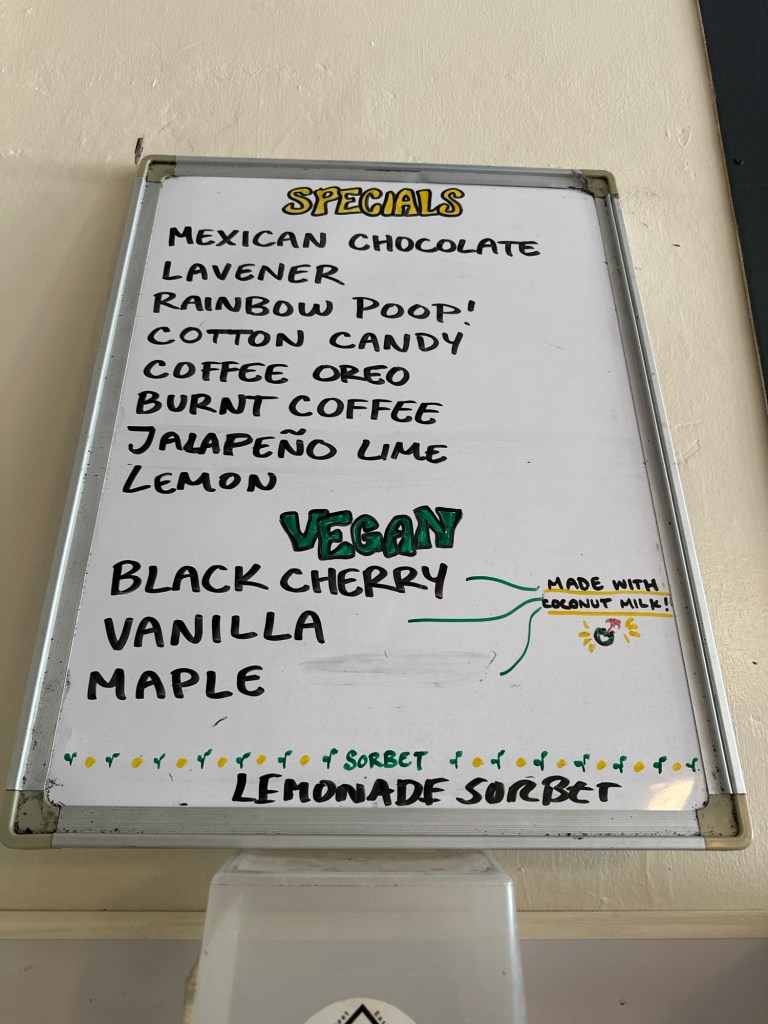 SPECIALS
MEXICAN CHOCOLATE
LAVENER
RAINBOW POOP!
COTTON CANDY
COFFEE OREO
BURNT COFFEE
JALAPEÑO LIME
LEMON
VEGAN
BLACK CHERRY
VANILLA
MAPLE
MADE WITH
COCONUT MILK!
SORBET
LEMONADE SORBET